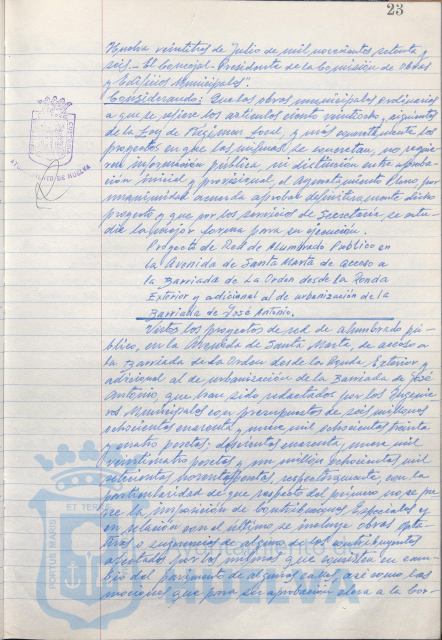 23
Huelva veintitres de Julio de mil novecientos setenta y
seis.- El Concejal-Presidente de la Comisión de Obras
y Edificios Municipales".
Considerando: Que las obras municipales ordinarias
a que se refiere los artículos ciento veintiocho y siguientes
de la Ley de Régimen Local, y más concretamente los
proyectos en que las mismas se concretan, no requie-
ren información pública ni distinción entre aproba-
ción inicial y provisional, el Ayuntamiento Pleno por
unanimidad acuerda aprobar definitivamente dicho
proyecto y que por los servicios de Secretaría, se estu-
die la mejor forma para su ejecución.
Proyecto de Red de Alumbrado Público en
la Avenida de Santa Marta de acceso a
la Barriada de La Orden desde la Ronda
Exterior y adicional al de urbanización de la
Barriada de José Antonio.
Vistos los proyectos de red de alumbrado pú-
blico, en la Avenida de Santa Marta, de acceso a
la Barriada de La Orden desde la Ronda Exterior y
adicional al de urbanización de la Barriada de José
Antonio que han sido redactados por los Ingenie-
ros Municipales con presupuestos de seis millones
ochocientas cuarenta y nueve mil ochocientas treinta
y cuatro pesetas; doscientas cuarenta y nueve mil
veinticuatro pesetas y un millón ochocientas mil
pesetas, respectivamente, con la
particularidad de que respecto del primero no se pre-
ve la imposición de Contribuciones Especiales y
en relación con el último se incluye obras
a sugerencias de alguno de los contribuyentes
afectados por las mismas que consisten en cam-
bio del pavimento de algunas calles, así como las
mociones que para su aprobación eleva a la Cor-
AYUNTAMIENTO DE HUELVA
PORTUS MARIS
ET TERRE
Ayuntamiento de
HUELVA